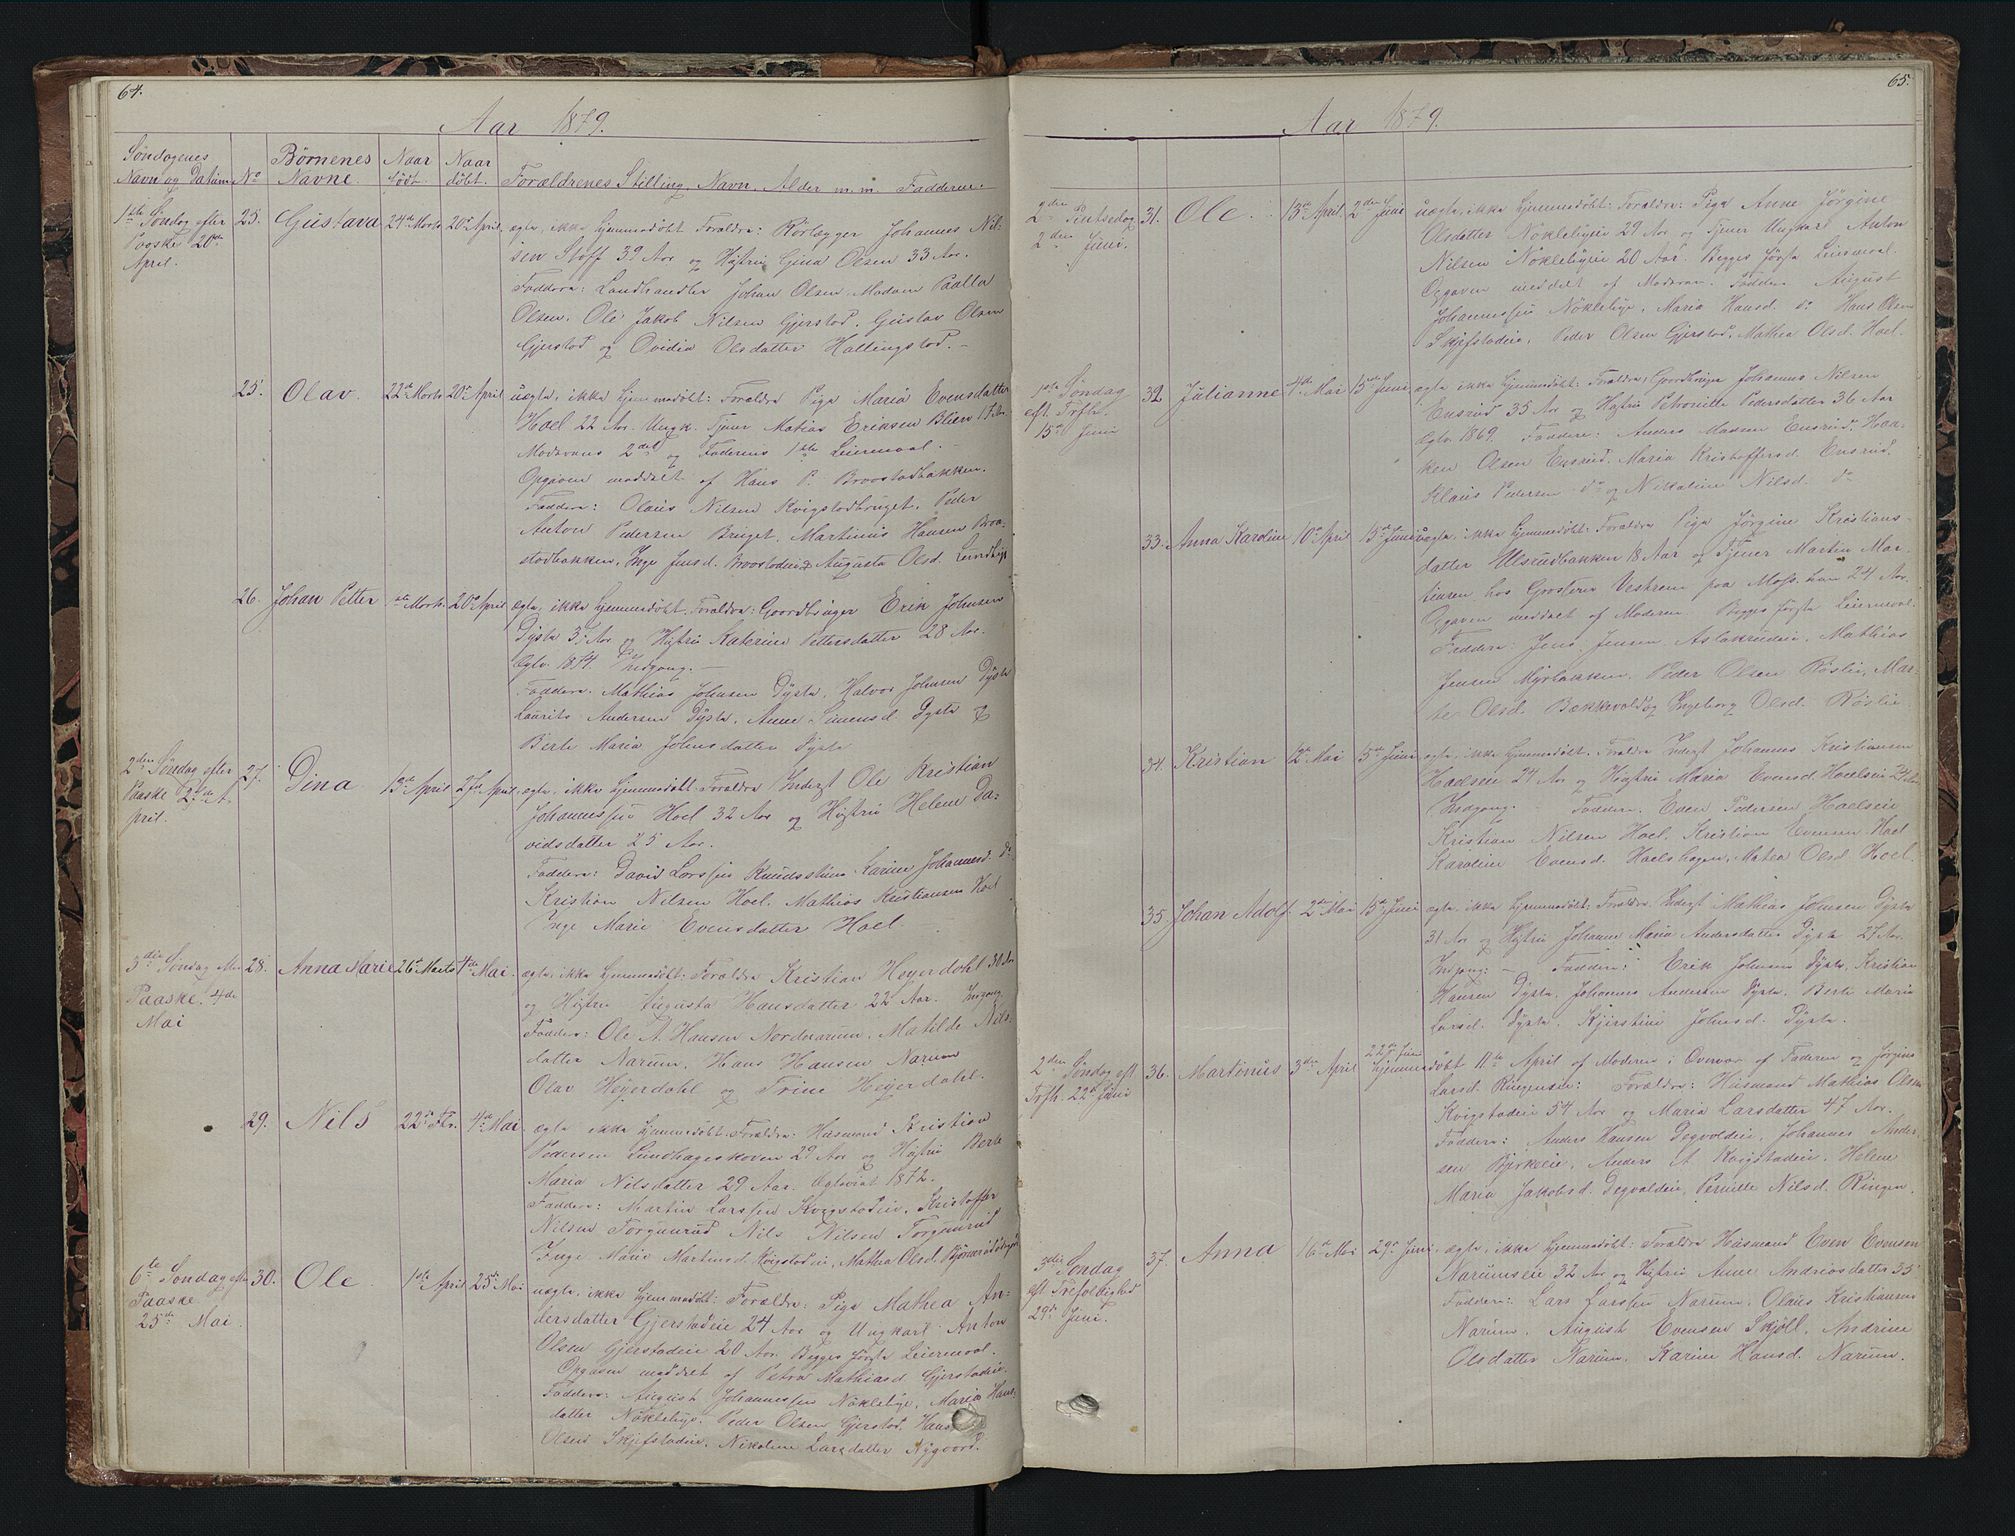 64.
Aar 1879.
Søndagenes Navn og Datum
No
Børnenes Navne.
Naar født.
Naar døbt.
Forældrenes Stilling, Navn, Alder m. m. Faddere.
1ste Søndag efter
Paaske 20de
April.
25. Gustava 24de Marts 20de April ægte, ikke hjemmedøbt. Forældre: Rørlægger Johannes Nil-
sen Stoff 39 Aar og Hustru Gina Olsen 33 Aar.
Faddere: Landhandler Johan Olsen, Madam Paalla
Olsen, Ole Jakob Nilsen Gjerstad, Gustav Olsen
Gjerstad og Ovidia Olsdatter Hallingstad.
25. Olav. 22de Marts 20de April uægte, ikke hjemmedøbt: Forældre Pige Maria Evensdatter
Hoel 22 Aar. Ungk. Tjener Matias Eriksen Blien
Moderens 2det og Faderens 1ste Leiermaal.
Opgaven meddelt af Hans P. Braastadbakken.
Faddere: Olaus Nilsen Kvigstadbruget, Peder
Anton Pedersen Bruget, Martinus Hansen Braa-
stadbakken, Inge Jensd. Braastadeie & Augusta Olsd.
26. Johan Petter Marts 20de April ægte, ikke hjemmedøbt. Forældre: Gaardbruger Erik Johnsen
Dyste Aar og Hustru Katerine Pettersdatter 28 Aar.
Ægtv. 1874. Indgang.
Faddere. Mathias Johnsen Dyste, Halvor Johnsen Dyste
Laurits Andersen Dyste, Anne Simensd. Dyste &
Berte Maria Johnsdatter Dyste
2den Søndag efter
Paaske 27de A-
pril.
27. Dina 13de April 27de April ægte, ikke hjemmedøbt. Forældre Inderst Ole Kristian
Johannessen Hoel 32 Aar og Hustru Helene Da-
vidsdatter 25 Aar.
Faddere: David Larssen Knudsstuen Karine Johannesd. do
Kristian Nilsen Hoel, Mathias Kristiansen Hoel
Inge Marie Evensdatter Hoel
3die Søndag efter
Paaske. 4de
Mai
28. Anna Marie 26de Marts 4de Mai. ægte, ikke hjemmedøbt: Forældre Kristian Heyerdahl 30 Aar
og Hustru Augusta Hansdatter 22 Aar. Indgang
Faddere: Ole A. Hansen Nordnarum, Matilde Nils-
datter Narum, Hans Hansen Narum
Olav Heyerdahl og Trine Heyerdahl.
29. Nils 22de Fbr. 4de Mai. ægte ikke hjemmedøbt. Forældre: Husmand Kristian
Pedersen Lundhageskoven 29 Aar og Hustru Berte
Maria Nilsdatter 29 Aar. Ægteviet 1872.
Faddere: Martin Larssen Kvigstadeie, Kristoffer
Nilsen Torgunrud Nils Nilsen Torgunrud
Inge Marie Martinsd. Kvigstadeie, Mathea Olsd.
6te Søndag efter
Paaske
25de Mai.
30. Ole 1ste April 25de Mai uægte, ikke hjemmedøbt: Forældre: Pige Mathea An-
dersdatter Gjerstadeie 24 Aar og Ungkarl Anton
Olsen Gjerstadeie 20 Aar. Begges første Leiermaal.
Opgaven meddelt af Petra Mathiasd. Gjerstadeie.
Faddere: August Johannessen Nøklebye, Maria Hans-
datter Nøklebye, Peder Olsen Gjerstad, Hans
Olsen Skjefstadeie, Nikoline Larsdatter Nygaard.
65.
Aar 1879.
2den Pintsedag
2den Juni.
31. Ole. 13de April 2den Juni uægte, ikke hjemmedøbt: Forældre: Pige Anne Jørgine
Olsdatter Nøklebyeie 29 Aar og Tjener Ungkarl Anton
Nilsen Nøklebyeie 20 Aar. Begges første Leiermaal.
Opgaven meddelt af Moderen. Faddere August
Johannessen Nøklebye, Maria Hansd. do Hans Olsen
Skjefstadeie, Peder Olsen Gjerstad, Mathea Olsd. Hoel.
1ste Søndag
eft. Trfh.
15de Juni
32. Julianne 4de Mai 15de Juni ægte ikke hjemmedøbt: Forældre: Gaardbruger Johannes Nilsen
Ensrud 35 Aar og Hustru Petronille Pedersdatter 36 Aar
Ægtv. 1869. Faddere: Anders Madsen Ensrud, Haa-
ken Olsen Ensrud. Maria Kristoffersd. Ensrud.
Klaus Pedersen do og Nikoline Nilsd. do
33. Anna Karoline 10de April 15de Juni uægte, ikke hjemmedøbt: Forældre Pige Jørgine Kristians-
datter Ulsrudbakken 18 Aar og Tjener Martin Mar-
tinsen hos Vestrem paa Moss. han 24 Aar.
Opgaven meddelt af Moderen Begges første Leiermaal.
Faddere: Jens Jensen Aslakrudeie, Mathias
Jensen Myrbakken, Peder Olsen Røslie, Mar-
te Olsd. Bækkevold og Ingeborg Olsd. Røslie.
34. Kristian 12te Mai 15de Juni ægte, ikke hjemmedøbt. Forældre Inderst Johannes Kristiansen
Hoelseie 24 Aar og Hustru Maria Evensd. Hoelseie 24 Aar
Indgang. Faddere. Even Pedersen Hoelseie
Kristian Nilsen Hoel, Kristian Evensen Hoel
Karoline Evensd. Hoelshagen, Matea Olsd. Hoel.
35. Johan Adolf. 2den Mai 15de Juni ægte, ikke hjemmedøbt: Forældre. Inderst Mathias Johnsen Dyste
31 Aar og Hustru Johanne Maria Andersdatter Dyste 27 Aar.
Indgang: — Faddere: Erik Johnsen Dyste, Kristian
Hansen Dyste, Johannes Andersen Dyste, Berte Maria
Larsd. Dyste, Kjerstine Johnsd. Dyste.
2den Søndag eft
Trfh. 22de Juni
36. Martinus 3den April 22de Juni hjemmedøbt 11te April af Moderen i Overvær af Faderen og Jørgine
Larsd. Ringenseie: Forældre: Husmand Mathias Olsen
Kvigstadeie 54 Aar og Maria Larsdatter 47 Aar.
Faddere: Anders Hansen Degvoldeie, Johannes Ander-
sen Bjerkeeie, Anders A. Kvigstadeie, Helene
Maria Jakobsd. Degvoldeie, Pernille Nilsd. Ringen.
3die Søndag
eft Trefoldighed
29de Juni.
37. Anna 16de Mai 29de Juni. ægte, ikke hjemmedøbt: Forældre Husmand Even Evensen
Narumseie 32 Aar og Hustru Anne Andriasdatter 35
Faddere: Lars Larssen Narum, Olaus Kristiansen
Narum, August Evensen Skjøll, Andrine
Olsdatter Narum, Karine Hansd. Narum.